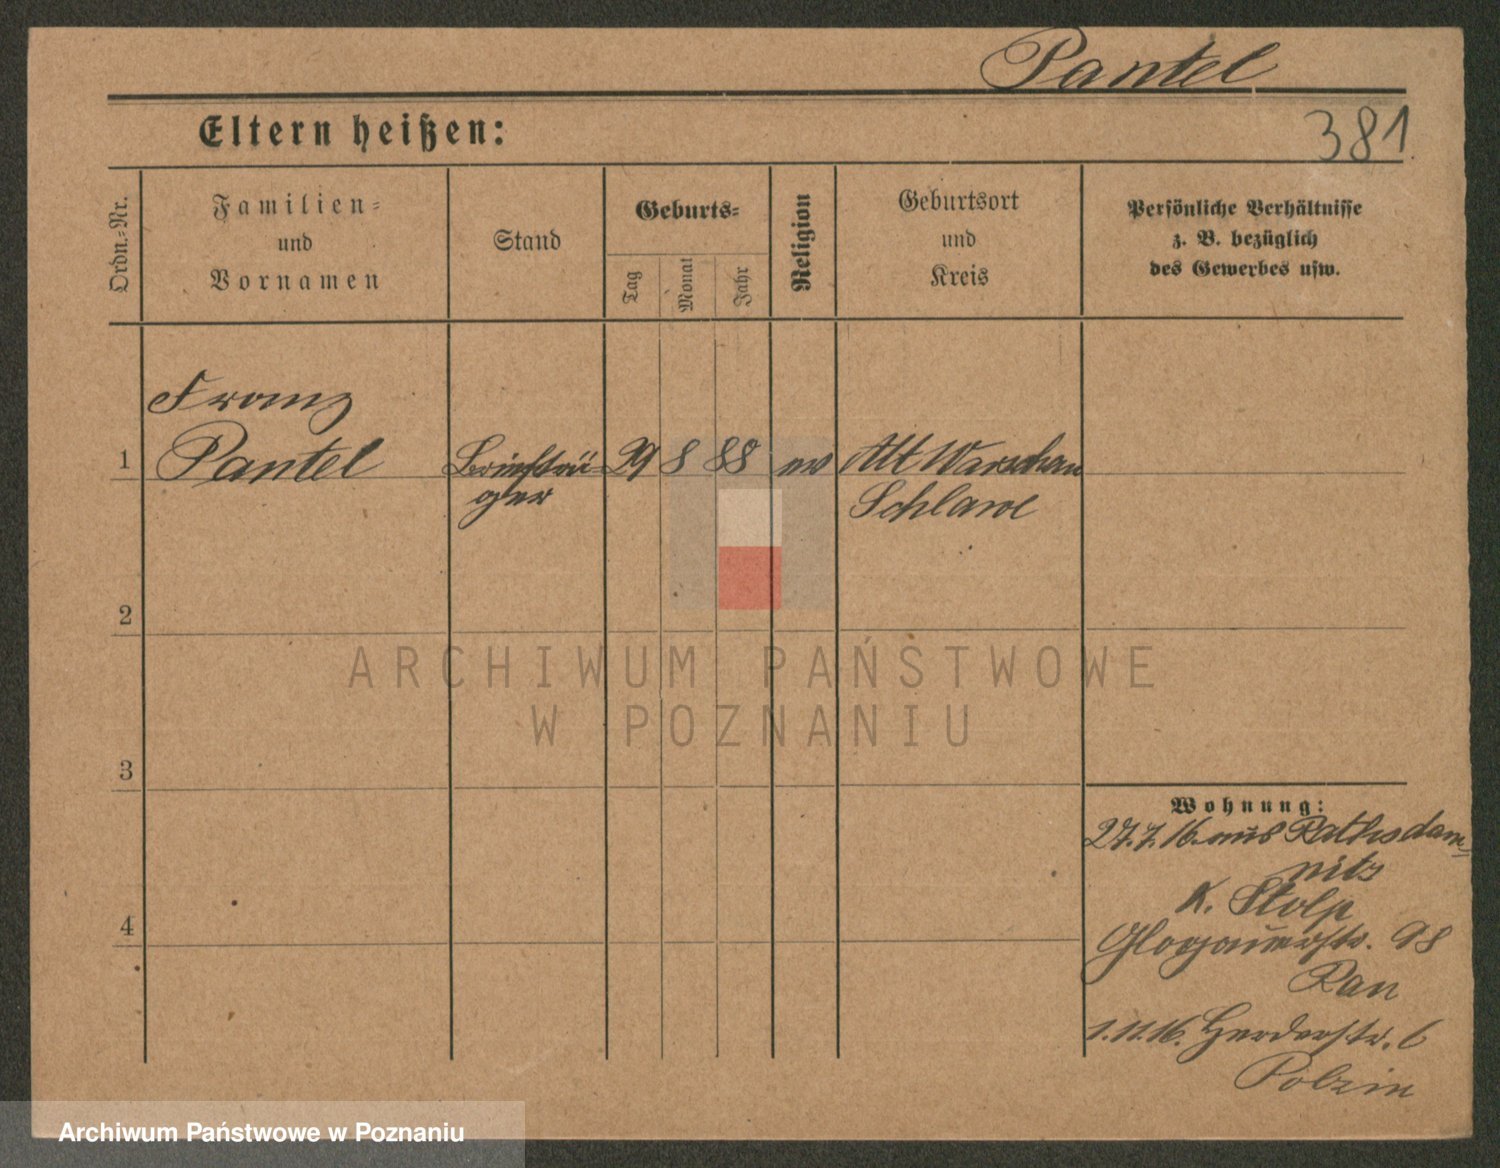 Pantel
381
Eltern heißen:
Ordn.-Nr.
Familien-
und
Vornamen
Stand
Geburts-
Tag
Monat
Jahr
Religion
Geburtsort
und
Kreis
Persönliche Verhältnisse
z. B. bezüglich
des Gewerbes usw.
Franz
1 Pantel Briefträ- 29 8 88 ev Alt Warschau
ger Schlawe
2
3
4
Wohnung:
27.7.16. aus Rathsdam-
nitz
K. Stolp
Glogauerstr. 98
Ran
1.11.16. Herderstr. 6
Polzin
ARCHIWUM PAŃSTWOWE
W POZNANIU
Archiwum Państwowe w Poznaniu